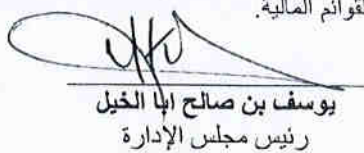 لقوائم المالية.
يوسف بن صالح ابا الخيل
رئيس مجلس الإدارة